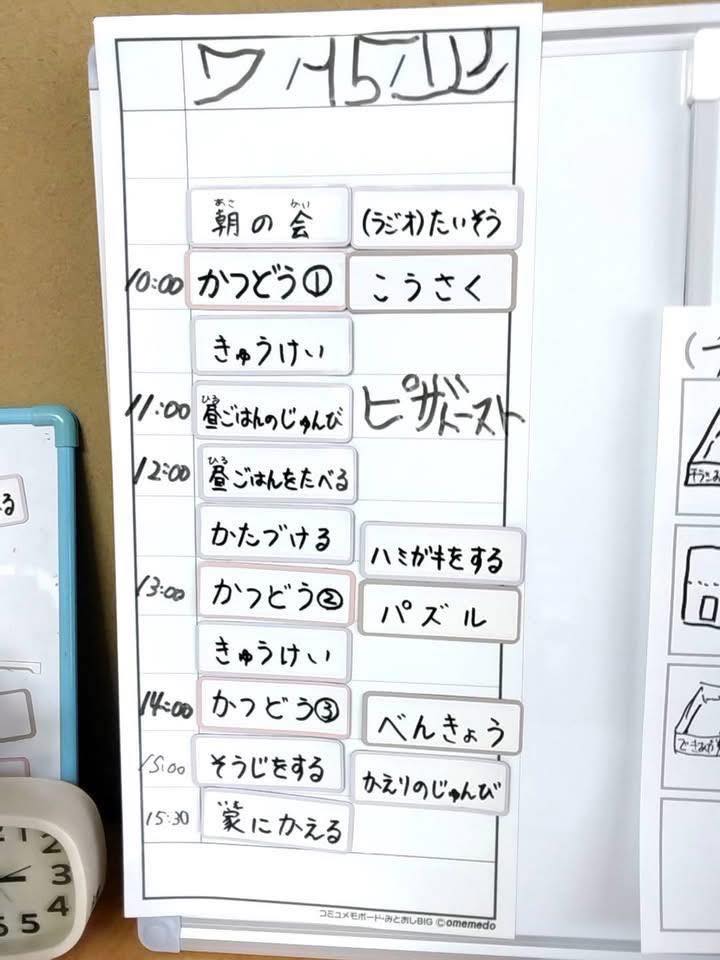 朝の会 (ラジオ)たいそう
あさ かい
10:00 かつどう① こうさく
きゅうけい
11:00 昼ごはんのじゅんび ピザトースト
ひる
12:00 昼ごはんをたべる
ひる
かたづける ハミガキをする
13:00 かつどう② パズル
きゅうけい
14:00 かつどう③ べんきょう
15:00 そうじをする かえりのじゅんび
15:30 家にかえる
いえ
コミュメモボード・みとおしBIG ©omemedo
12
3
4
5
6